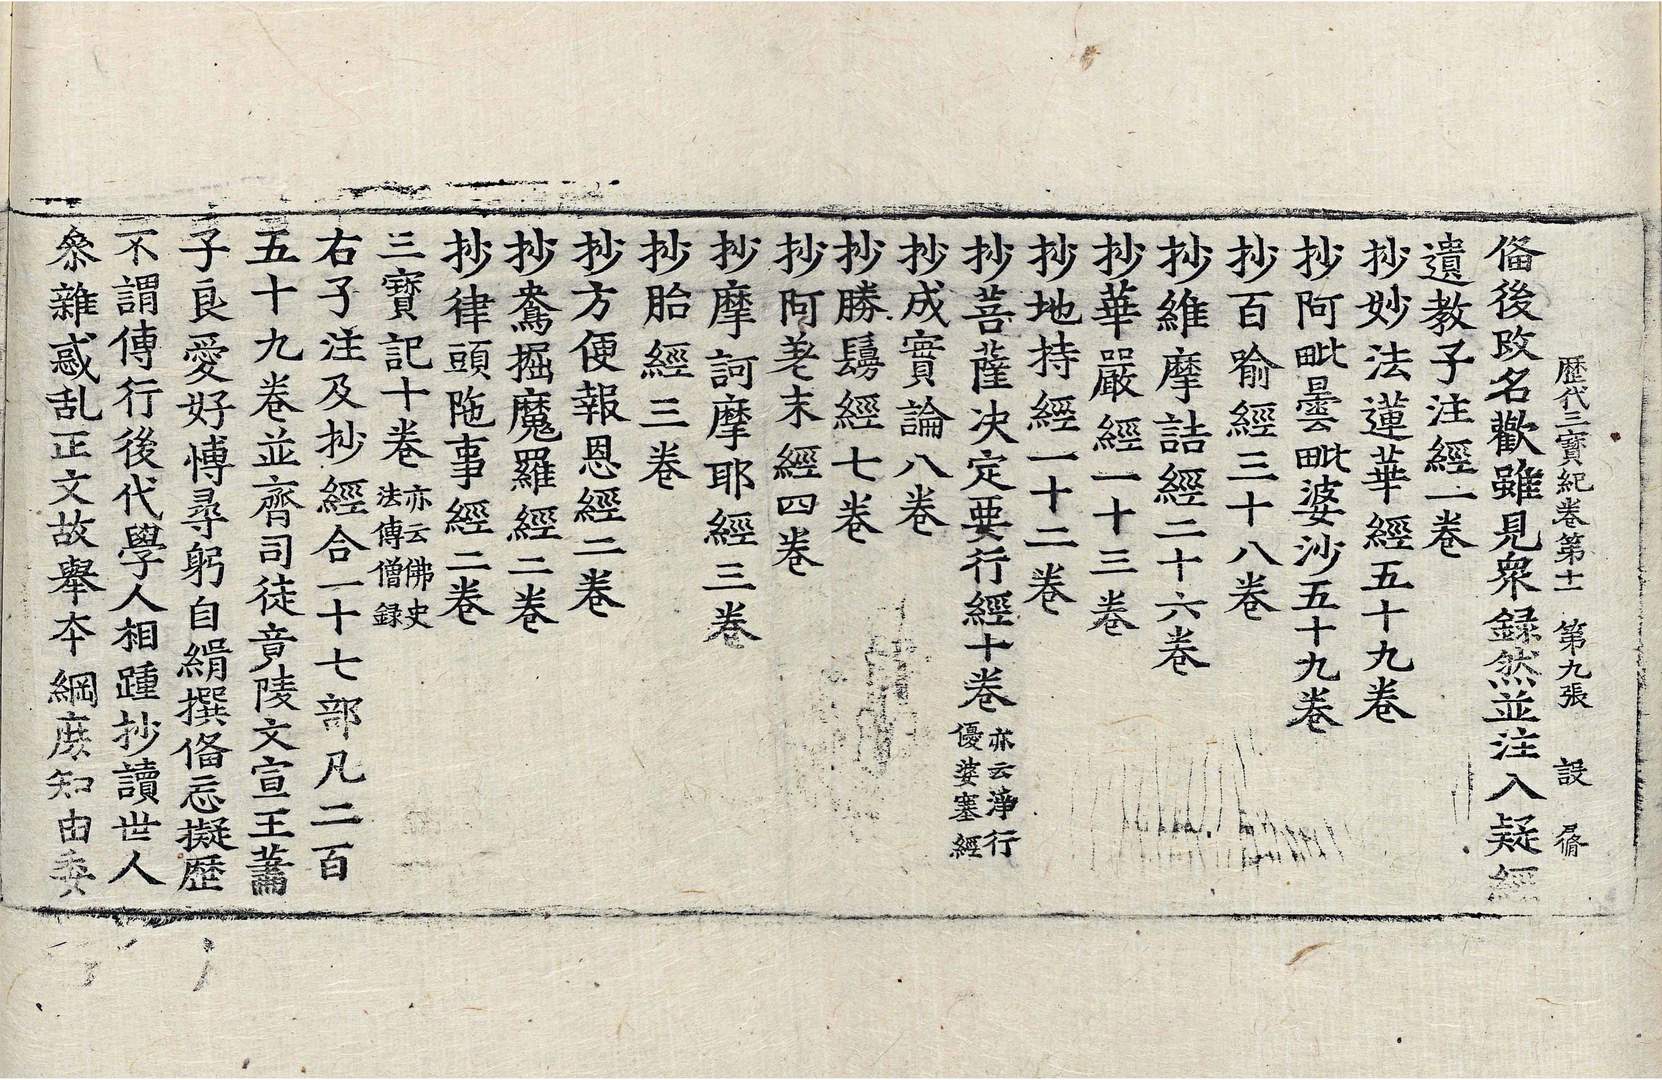 歷代三寶紀卷第十一 第九張 設
俻後改名歡雖見衆録然並注入疑經
遺教子注經一卷
抄妙法蓮華經五十九卷
抄阿毗曇毗婆沙五十九卷
抄百喻經三十八卷
抄維摩詰經二十六卷
抄華嚴經一十三卷
抄地持經一十二卷
抄菩薩决定要行經十卷 亦云淨行優婆塞經
抄成實論八卷
抄勝鬘經七卷
抄阿差末經四卷
抄摩訶摩耶經三卷
抄胎經三卷
抄方便報恩經二卷
抄鴦掘魔羅經二卷
抄律頭陁事經二卷
三寶記十卷 亦云佛史法傳僧録
右子注及抄經合一十七部凡二百
五十九卷並齊司徒竟陵文宣王蕭
子良愛好愽尋躬自緝撰俻忘擬歷
不謂傳行後代學人相踵抄讀世人
叅雜惑乱正文故舉夲綱庶知由委